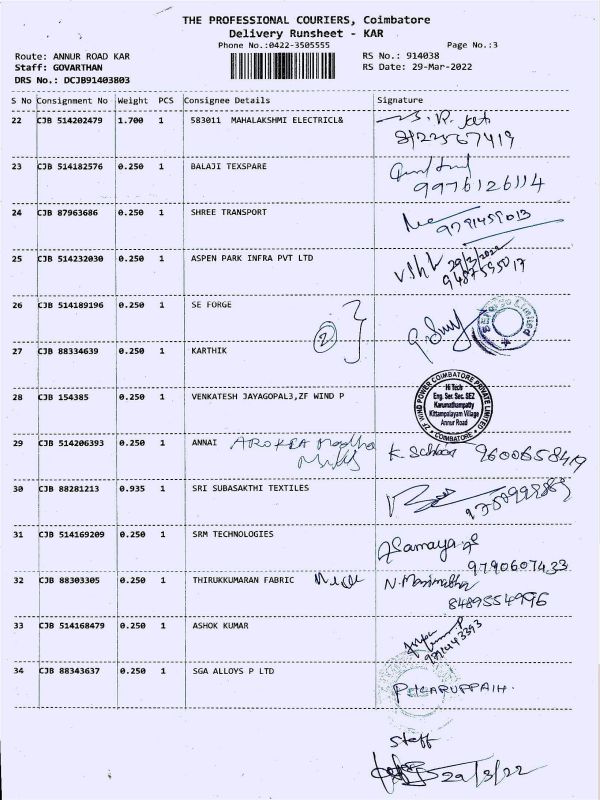 THE PROFESSIONAL COURIERS, Coimbatore
Delivery Runsheet - KAR
Phone No.:0422-3505555 Page No.:3
Route: ANNUR ROAD KAR RS No.: 914038
Staff: GOVARTHAN RS Date: 29-Mar-2022
DRS No.: DCJB91403803
S No Consignment No Weight PCS Consignee Details Signature
22 CJB 514202479 1.700 1 583011 MAHALAKSHMI ELECTRICL&
23 CJB 514182576 0.250 1 BALAJI TEXSPARE
9976126114
24 CJB 87963686 0.250 1 SHREE TRANSPORT
25 CJB 514232030 0.250 1 ASPEN PARK INFRA PVT LTD 29/3/2022
9487595017
26 CJB 514189196 0.250 1 SE FORGE
2
27 CJB 88334639 0.250 1 KARTHIK
28 CJB 154385 0.250 1 VENKATESH JAYAGOPAL3,ZF WIND P
ZF WIND POWER COIMBATORE PRIVATE LIMITED
Hi Tech
Eng. Ser. Sec. SEZ
Karumathampatty
Kittampalayam Village
Annur Road
COIMBATORE
29 CJB 514206393 0.250 1 ANNAI AROKEA Madha 9600658419
30 CJB 88281213 0.935 1 SRI SUBASAKTHI TEXTILES
31 CJB 514169209 0.250 1 SRM TECHNOLOGIES
9790607433
32 CJB 88303305 0.250 1 THIRUKKUMARAN FABRIC
8489554996
33 CJB 514168479 0.250 1 ASHOK KUMAR
34 CJB 88343637 0.250 1 SGA ALLOYS P LTD
P.KARUPPAIH.
Staff
29/3/22